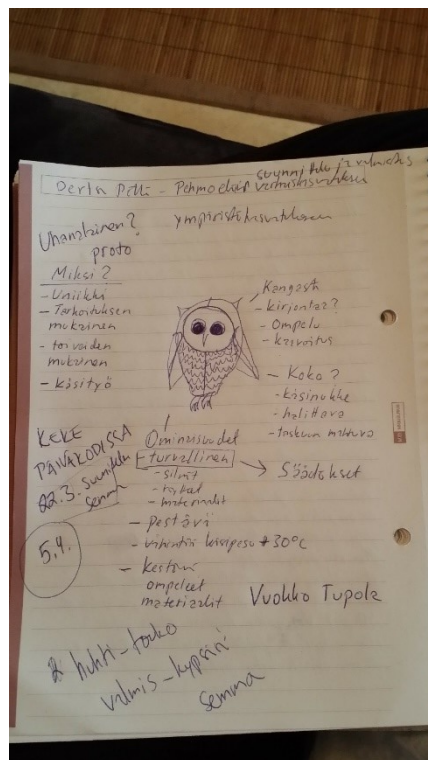 Pehmoeläin
suunnittelu ja valmistus
ympäristökasvatukseen
Uhanalainen?
proto
Miksi?
- Uniikki
- Tarkoituksen
mukainen
- toiveiden
mukainen
- käsityö
Kangasta
- kirjontaa?
- Ompelu
- kasvatus
- Koko?
- käsinukke
- halittava
- taskuun mahtuva
KEKE
PÄIVÄKODISSA
22.3. suunnittelu
semma
5.4.
Ominaisuudet
- turvallinen → Säädökset
- silmät
- materiaalit
- pestävä
- vähintään käsipesu 30°C
- Kestävä
ompeleet
materiaalit
Vuokko Tupola
huhti-touko
valmis-kypsyni
semma